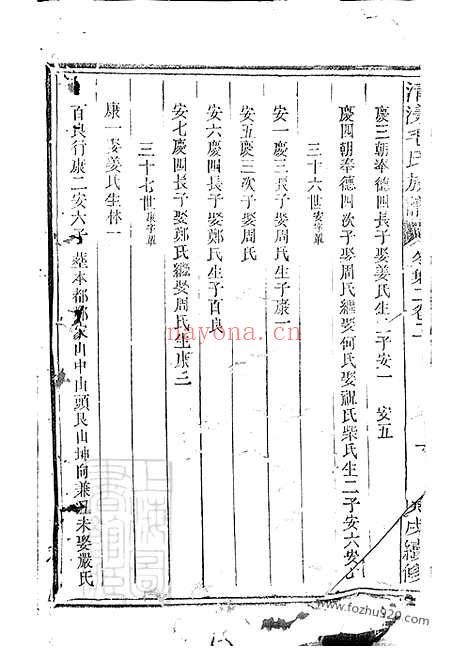 清漾毛氏族譜
慶三朝奉德四長子娶姜氏生二子安一 安五
慶四朝奉德四次子娶周氏繼娶何氏娶祝氏柴氏生二子安六安七
三十六世安字單
安一慶三長子娶周氏生子康一
安五慶三次子娶周氏
安六慶四長子娶鄭氏生子百良
安七慶四長子娶鄭氏繼娶周氏生康三
三十七世康字單
康一娶姜氏生林一
百良行康二安六子 塟本都鄭家山中山頭艮山坤向兼丑未娶嚴氏
nayona.cn
www.fozhu920.com